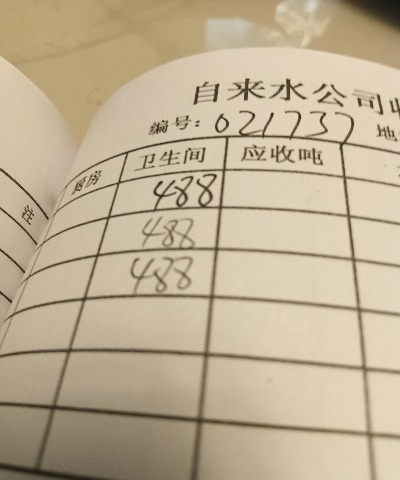 自来水公司收
编号: 021737 地
注 厨房 卫生间 应收吨
488
488
488